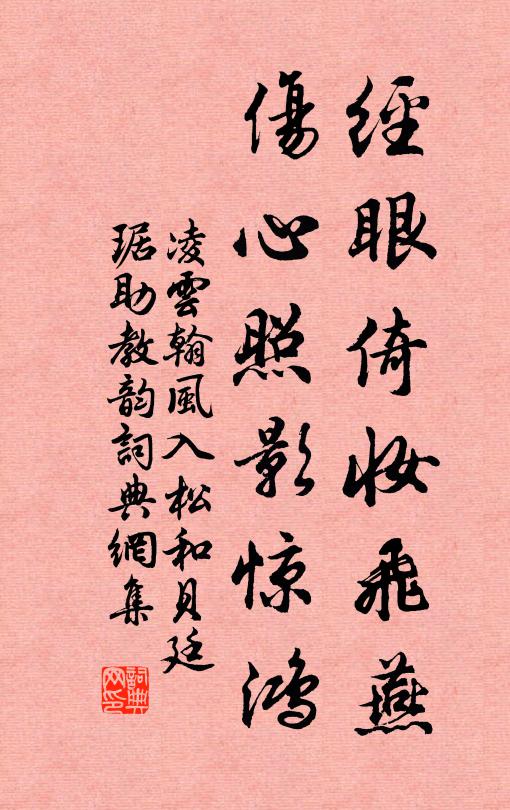 經眼倚妆飛燕
傷心照影惊鴻
凌雲翰風入松和貝廷
琚助教韵詞典網集
詞典网印